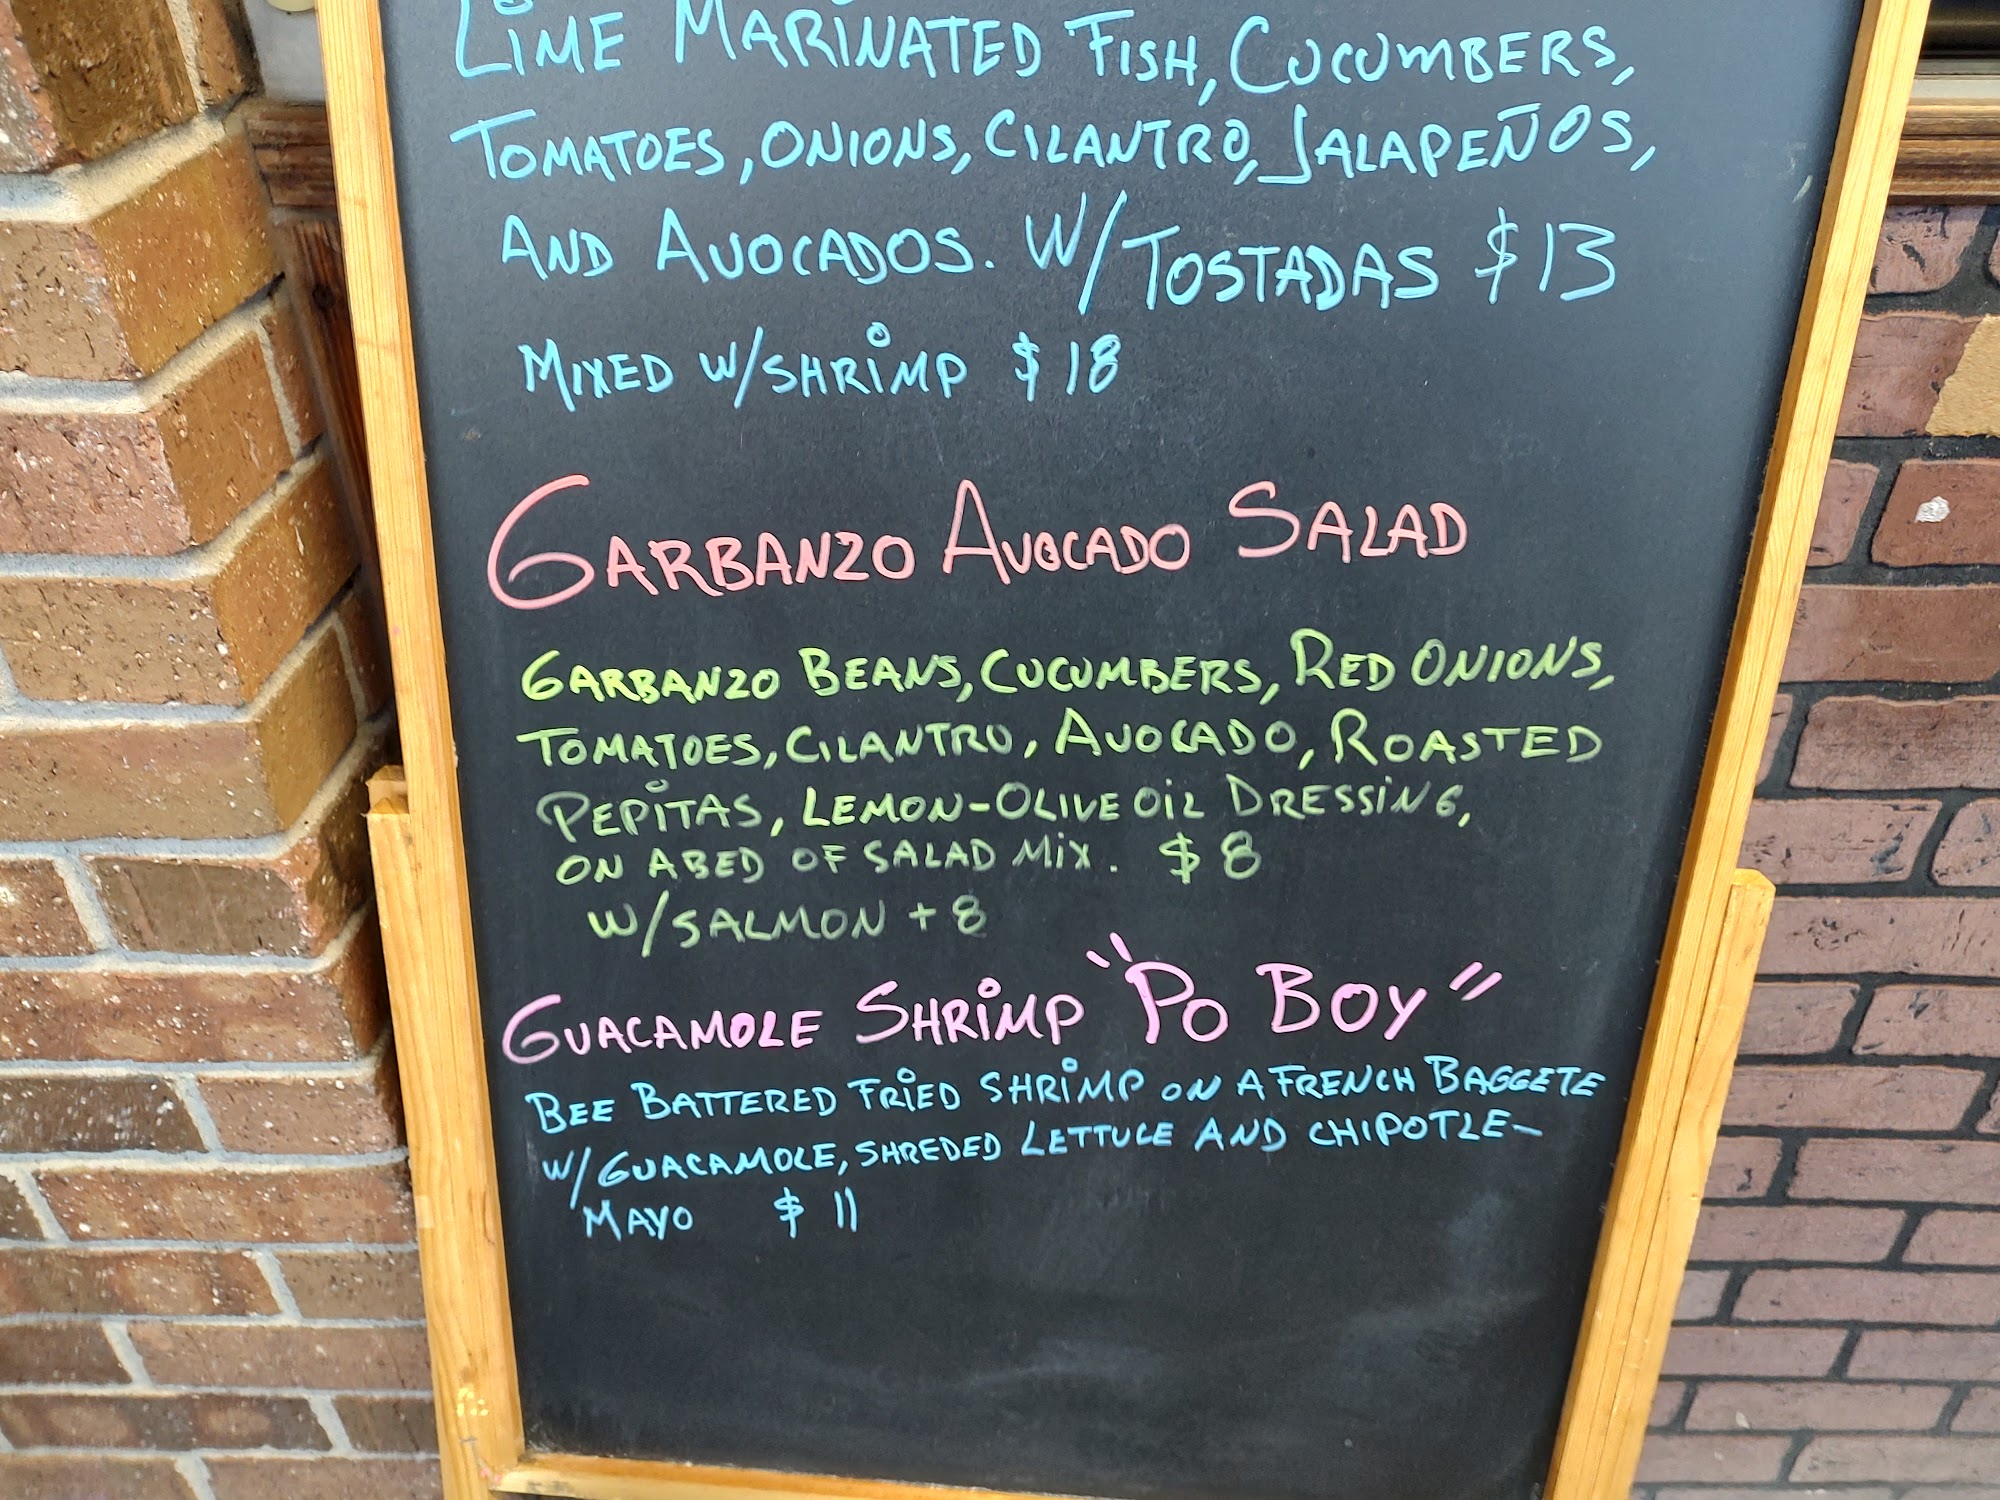 LIME MARINATED FISH, CUCUMBERS,
TOMATOES, ONIONS, CILANTRO, JALAPEÑOS,
AND AVOCADOS. W/TOSTADAS $13
MIXED W/SHRIMP $18
GARBANZO AVOCADO SALAD
GARBANZO BEANS, CUCUMBERS, RED ONIONS,
TOMATOES, CILANTRO, AVOCADO, ROASTED
PEPITAS, LEMON-OLIVE OIL DRESSING,
ON A BED OF SALAD MIX. $8
W/SALMON +8
GUACAMOLE SHRIMP "PO BOY"
BEE BATTERED FRIED SHRIMP ON A FRENCH BAGGETE
W/GUACAMOLE, SHREDED LETTUCE AND CHIPOTLE-
MAYO $11